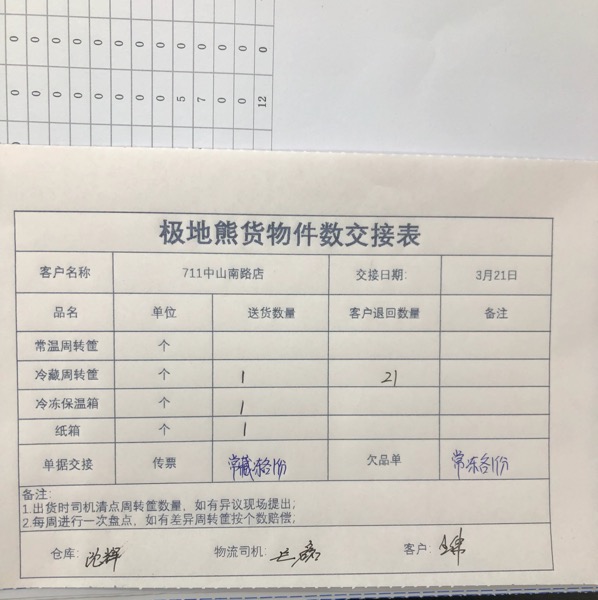 0 0 0 0 0 0 0 0 0 0 0
0 0 0 0 0 0 0 5 7 0 0 12
极地熊货物件数交接表
客户名称 711中山南路店 交接日期: 3月21日
品名 单位 送货数量 客户退回数量 备注
常温周转筐 个
冷藏周转筐 个 1 21
冷冻保温箱 个 1
纸箱 个 1
单据交接 传票 常藏冻各1份 欠品单 常冻各1份
备注:
1.出货时司机清点周转筐数量,如有异议现场提出;
2.每周进行一次盘点,如有差异周转筐按个数赔偿;
仓库: 沈辉 物流司机: 客户: